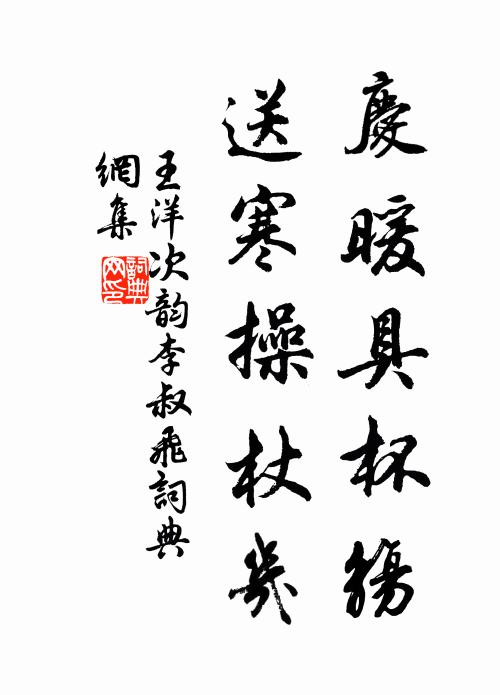 慶暖具杯觴
送寒操杖幾
王洋次韵李叔飛詞典
網集
詞典
网印